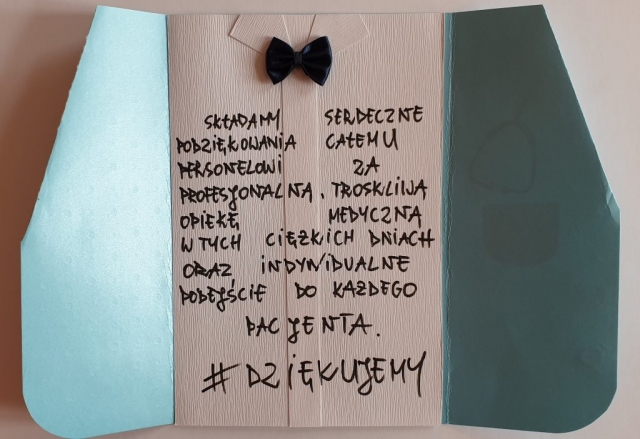 SKŁADAMY SERDECZNE
PODZIĘKOWANIA CAŁEMU
PERSONELOWI ZA
PROFESJONALNĄ, TROSKLIWĄ
OPIEKĘ MEDYCZNĄ
W TYCH CIĘŻKICH DNIACH
ORAZ INDYWIDUALNE
PODEJŚCIE DO KAŻDEGO
PACJENTA.
#DZIĘKUJEMY